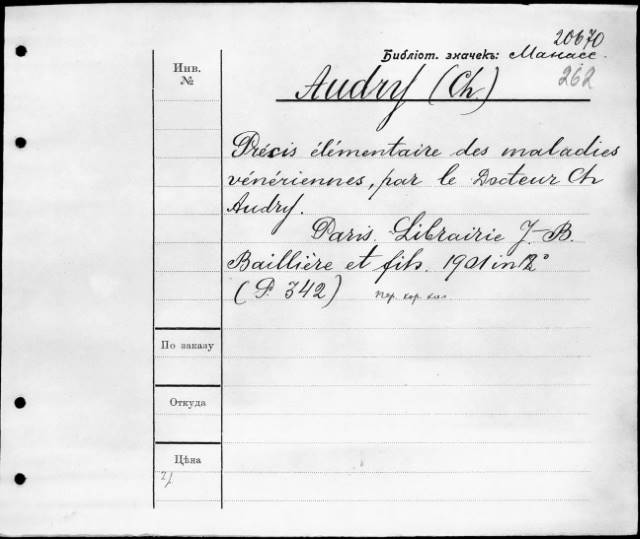 20670
Библіот. значекъ: Манасс.
262
Инв.
№
Audry (Ch.)
Précis élémentaire des maladies
vénériennes, par le Docteur Ch
Audry.
Paris. Librairie J.-B.
Baillière et fils. in 12°
(P. 342)
По заказу
Откуда
Цѣна